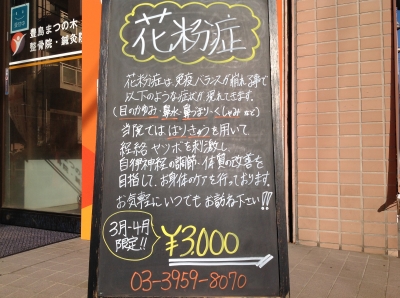 豊島まつの木
整骨院・鍼灸院
花粉症
花粉症は免疫バランスが崩れる事で
以下のような症状が現れてきます。
(目のかゆみ・鼻水・鼻づまり・くしゃみ など)
当院では はりきゅうを用いて
経絡やツボを刺激し、
自律神経の調節・体質の改善を
目指して、お身体のケアを行っております。
お気軽に いつでも お訪ね下さい!!!
3月-4月
限定!!
¥3,000
03-3959-8070